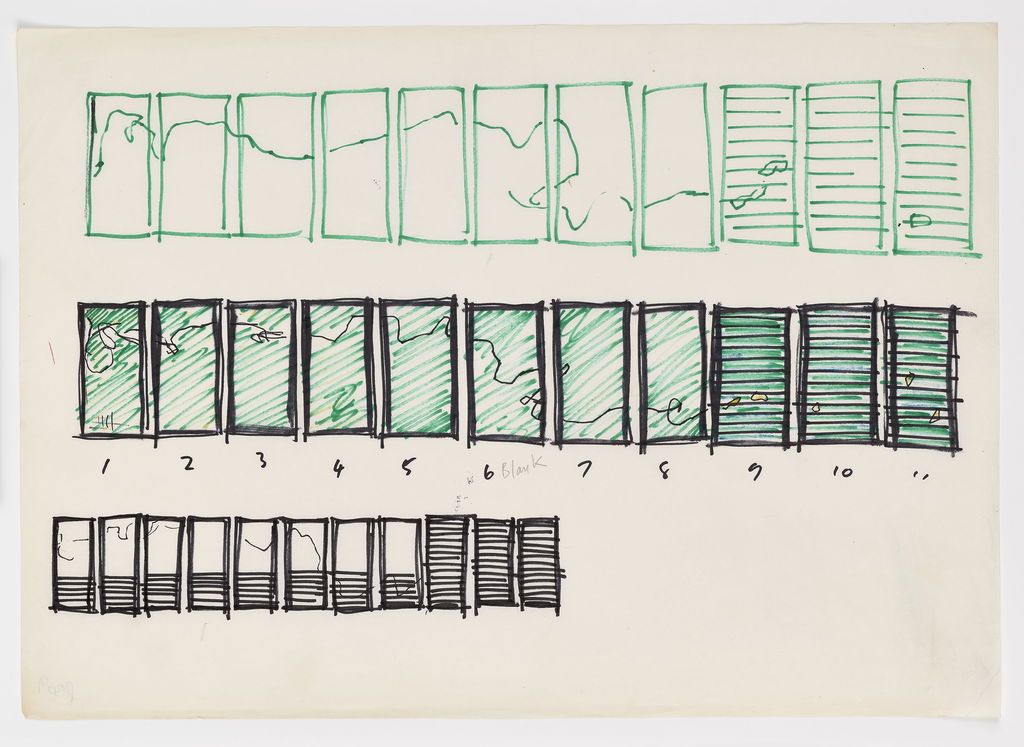 1 2 3 4 5 6 Blank 7 8 9 10 11